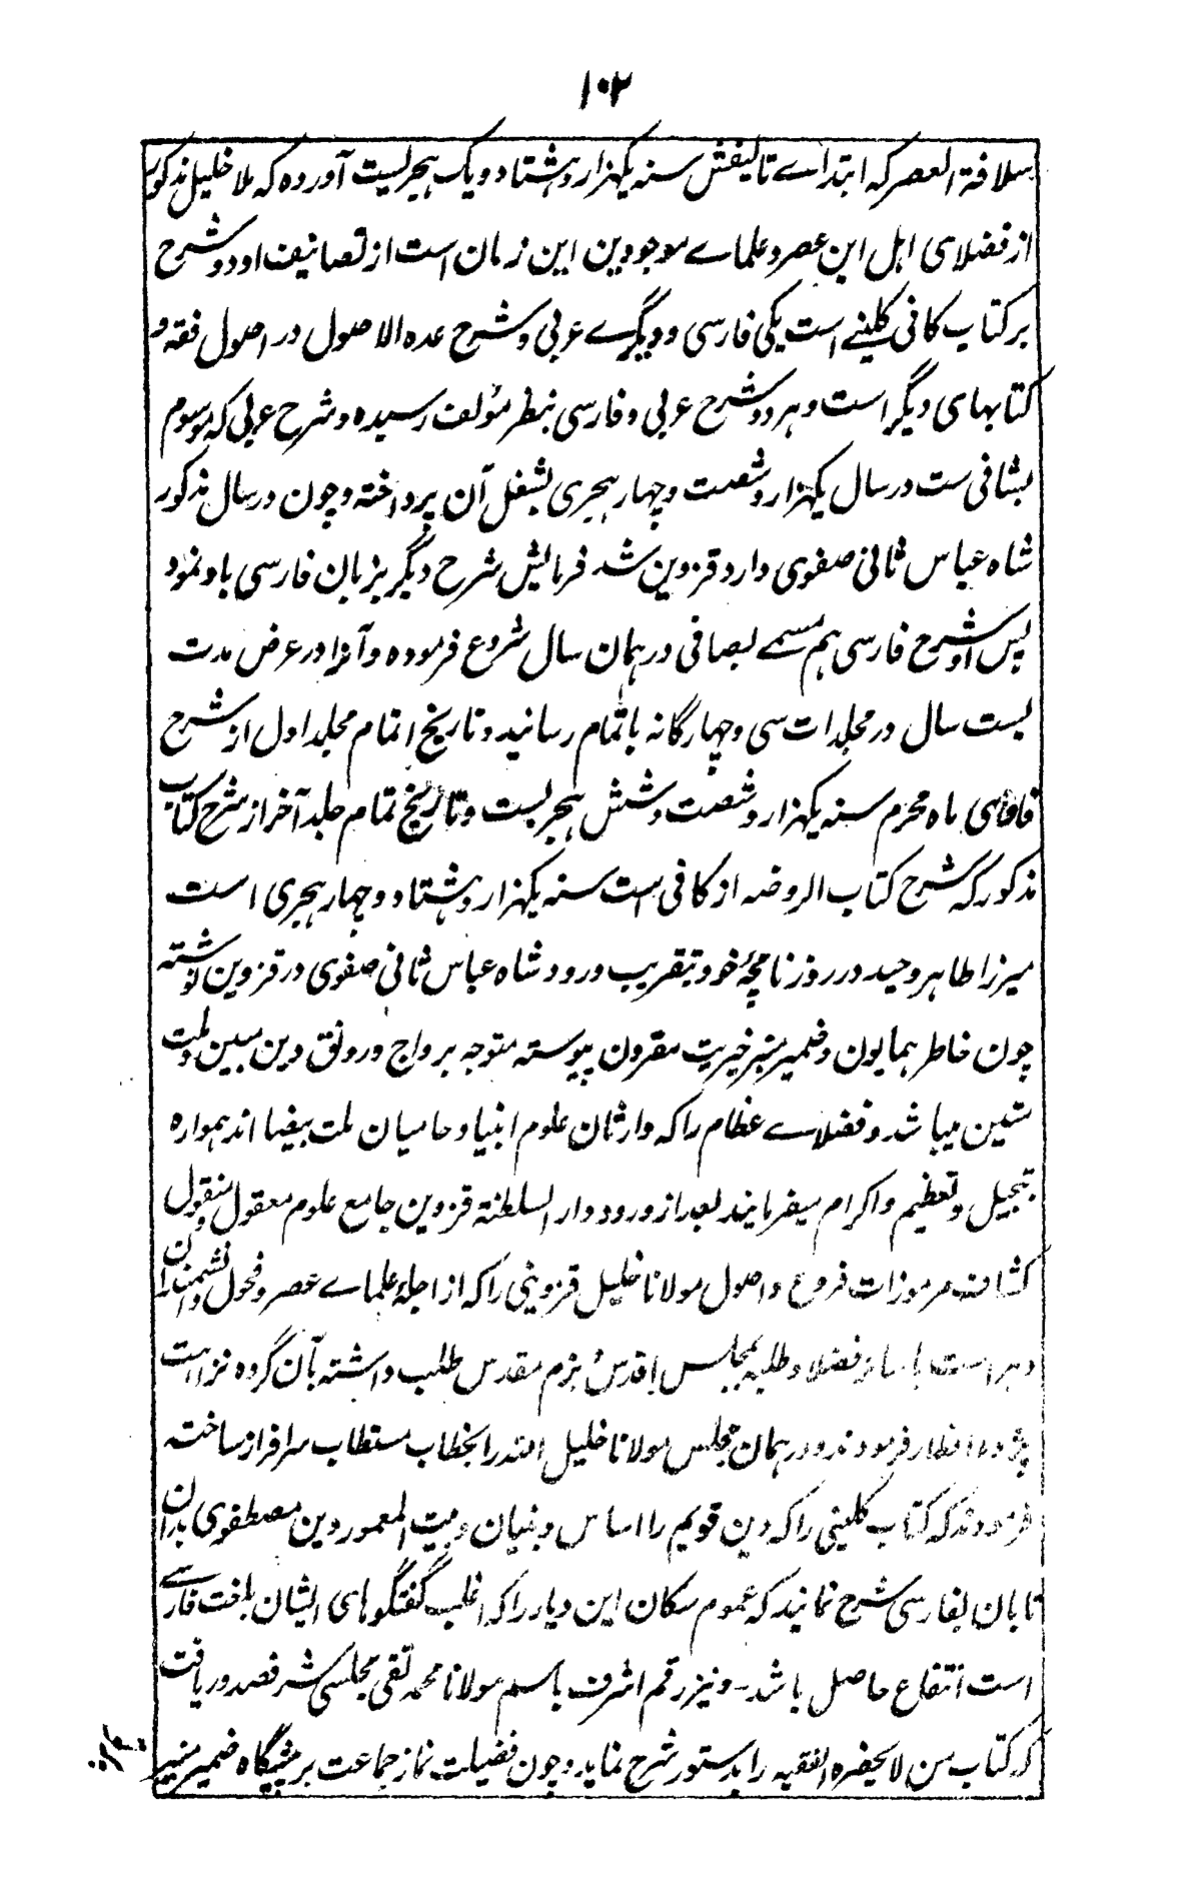 ۱۰۲
سلافة العصر که ابتداے تالیفش سنه یکهزار و هشتاد و یک هجریست آورده که ملا خلیل مذکور
از فضلای اهل این عصر و علماے موجودین این زمان است از تصانیف او دو شرح
بر کتاب کافی کلینے است یکی فارسی و دیگرے عربی و شرح عده الاصول در اصول فقه و
کتابهای دیگر است و هر دو شرح عربی و فارسی بنظر مؤلف رسیده و شرح عربی که موسوم
بشافی ست در سال یکهزار و شصت و چهار هجری بشغل آن پرداخته و چون در سال مذکور
شاه عباس ثانی صفوی وارد قزوین شد فرمایش شرح دیگر بزبان فارسی باو نمود
پس او شرح فارسی هم مسمے بصافی در همان سال شروع فرموده و آنرا در عرض مدت
بست سال در مجلدات سی و چهارگانه باتمام رسانید و تاریخ اتمام مجلد اول از شرح
فارسی ماه محرم سنه یکهزار و شصت و شش هجریست و تاریخ تمام جلد آخر از شرح کتاب
مذکور که شرح کتاب الروضه از کافی است سنه یکهزار و هشتاد و چهار هجری است
میرزا طاهر وحید در روزنامچهٔ خود بتقریب ورود شاه عباس ثانی صفوی در قزوین نوشته
چون خاطر همایون و ضمیر منیر خیریت مقرون پیوسته متوجه برواج و رونق دین مبین و ملت
متین میباشد و فضلاے عظام را که وارثان علوم انبیا و حامیان ملت بیضا اند همواره
تبجیل و تعظیم و اکرام میفرمایند بعد از ورود دار السلطنة قزوین جامع علوم معقول و منقول
کشاف مرموزات فروع و اصول مولانا خلیل قزوینی را که از اجلهٔ علماے عصر و فحول دانشمندان
دهر است با سائر فضلا و طلبه بمجلس اقدس بزم مقدس طلب داشته بآن گروه نزاهت
پژوه افطار فرمودند و در همان مجلس مولانا خلیل الله را بخطاب مستطاب سرافراز ساخته
فرمودند که کتاب کلینی را که دین قویم را اساس و بنیان و بیت المعمور دین مصطفوی بدان
تابان بفارسی شرح نمایند که عموم سکان این دیار را که اغلب گفتگوهای ایشان بلغت فارسے
است انتفاع حاصل باشد - و نیز رقم اشرف باسم مولانا محمد تقی مجلسی شرف صدور یافت
که کتاب من لا یحضره الفقیه را بدستور شرح نماید و چون فضیلت نماز جماعت بر پیشگاه ضمیر منیر